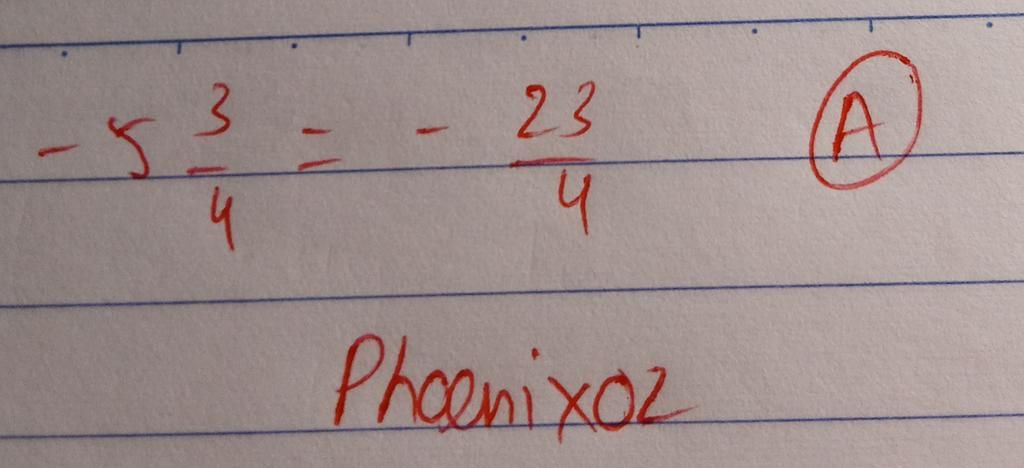 - 5 3/4 = - 23/4 A
Phoenix02